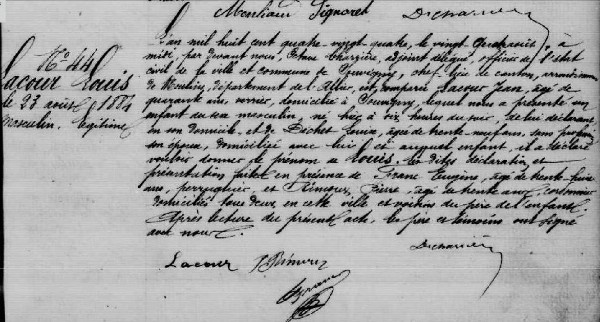 Montluçon Signoret
Nº 44
Lacour Louis
le 23 août 1884
masculin. Légitime
L'an mil huit cent quatre vingt quatre, le vingt quatre août, à
midi, par devant nous, adjoint délégué, officier de l'état
civil de la ville et commune de Souvigny, chef-lieu de canton, arrondissement
de Moulins, département de l'Allier, est comparu Lacour Jean, âgé de
quarante ans, domicilié à Souvigny, lequel nous a présenté un
enfant du sexe masculin, né hier à six heures du soir, de lui déclarant,
en son domicile, et de Louise, âgée de trente-neuf ans, sans profession
son épouse, domiciliée avec lui et auquel enfant, il a déclaré
vouloir donner le prénom de Louis, les dites déclaration et
présentation faites en présence de Franc Eugène, âgé de trente
ans, perruquier, et Rimoux Pierre, âgé de trente ans, cordonnier
domiciliés tous deux, en cette ville et voisins du père de l'enfant.
Après lecture du présent acte, le père et témoins ont signé
avec nous.
Lacour P Rimoux